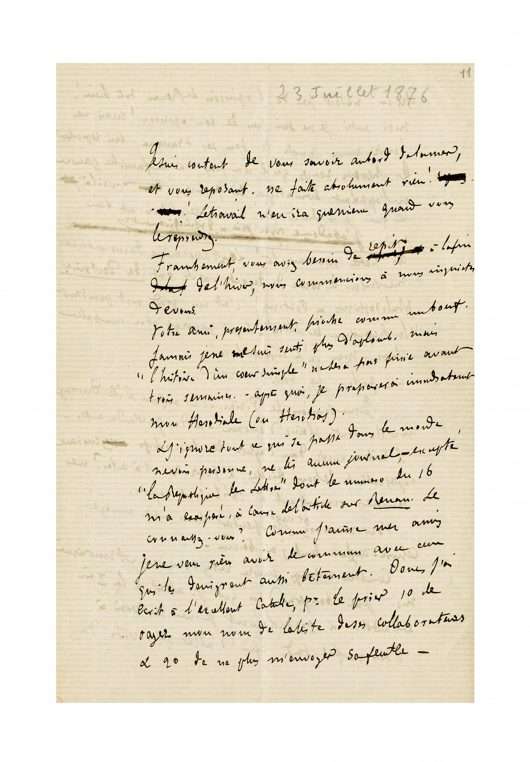 11
23 Juillet 1876
Je suis content de vous savoir au bord de la mer,
et vous reposant. ne faite absolument rien!
! Le travail n'en ira que mieux quand vous
le reprendrez.
Franchement, vous aviez besoin de repos; à la fin
de l'hiver, nous commencions à nous inquieter
de vous
Votre ami, présentement, pioche comme un boeuf.
Jamais je ne me suis senti plus d'aplomb. mais
"l'histoire d'un coeur simple" ne sera pas finie avant
trois semaines. - après quoi, je preparerai immediatement
mon Herodiade (ou Herodias).
J'ignore tout ce qui se passe dans le monde
ne vois personne, ne lis aucun journal, - excepté
"la République des Lettres" dont le numero du 16
m'a exaspéré, à cause de l'article sur Renan. Le
connaissez-vous? Comme j'aime mes amis
je ne veux rien avoir de commun avec ceux
qui les denigrent aussi bêtement. Donc, j'ai
écrit à l'excellent Catulle, pr le prier 1o de
rayer mon nom de la liste de ses collaborateurs
& 2o de ne plus m'envoyer sa feuille —